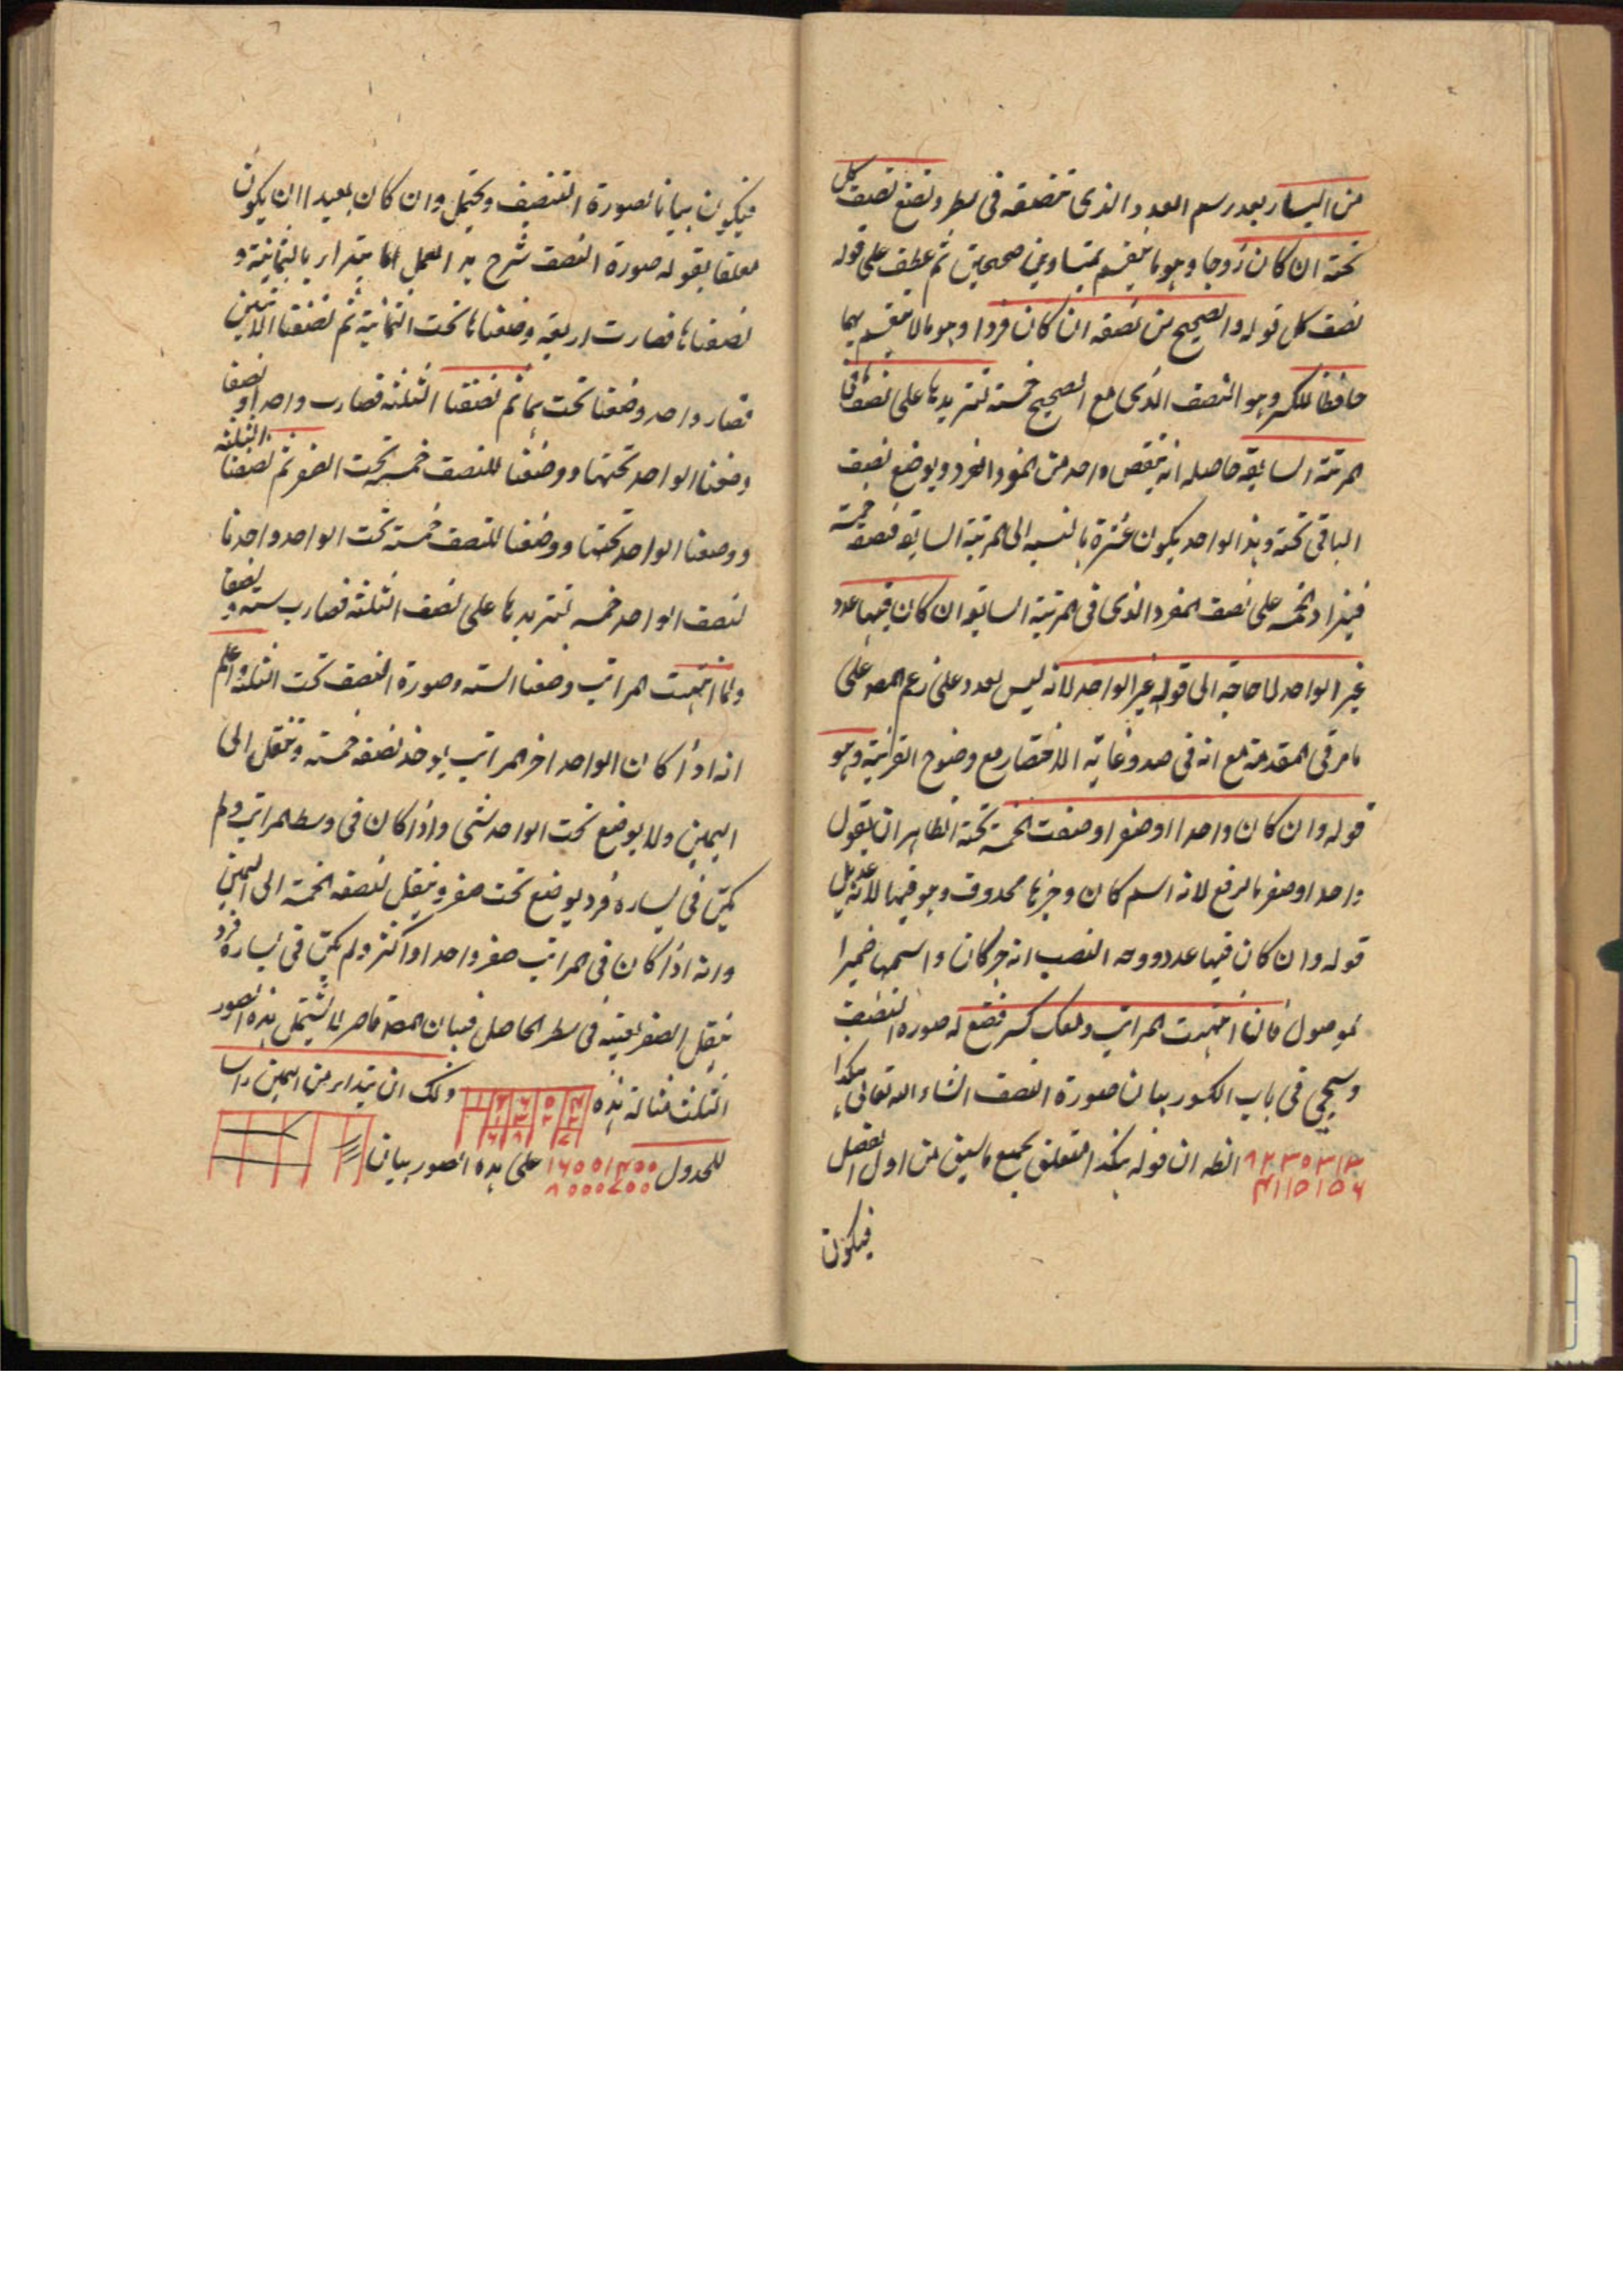 من اليسار بعد رسم العدد الذى تنصفه فى سطر وتضع نصف كل
تحته ان كان زوجا وهو ما ينقسم بمتساويين صحيحين ثم عطف على قوله
نصف كل قوله والصحيح من نصفه ان كان فردا وهو ما لا ينقسم بهما
حافظا للكسر وهو النصف الذى مع الصحيح خمسة لتزيدها على نصف ما فى
المرتبة السابقة حاصله انه ينقص واحد من المفرد الفرد ويوضع نصف
الباقى تحته وهذا الواحد يكون عشرة بالنسبه الى المرتبة السابقه فنصفه خمسة
فيزاد الخمسه على نصف المفرد الذى فى المرتبة السابقه ان كان فيها عدد
غير الواحد لا حاجة الى قوله غير الواحد لانه ليس بعدد على زعم المصه على
ما مر فى المقدمة مع انه فى صدد غاية الاختصار مع وضوح القرينة وهو
قوله وان كان واحدا او صفرا وضعت الخمسة تحته الظاهر ان يقول
واحد او صفر بالرفع لانه اسم كان وخبرها محذوف وهو فيها لانه عديل
قوله وان كان فيها عدد ووجه النصب انه خبر كان واسمها ضمير
لموصول فان انتهت المراتب ومعك كسر فضع له صورة النصف
وسيجئ فى باب الكسور بيان صورة النصف انشاء الله تعالى هكذا
انظه ان قوله هكذا متعلق بجميع ما سبق من اول الفصل
فيكون
فيكون بيانا لصورة التنصيف ويحتمل وان كان بعيدا ان يكون
معلقا بقوله صورة النصف شرح هذا العمل انا بتدانا بالثمانية و
نصفناها فصارت اربعة وضعناها تحت الثمانية ثم نصفنا الاثنين
فصار واحد وضعنا تحت هما ثم نصفنا الثلثة فصارت واحدا ونصفا
وضعنا الواحد تحتها ووضعنا للنصف خمسة تحت الصفر ثم نصفنا الثلثة
ووضعنا الواحد تحتها ووضعنا للنصف خمسة تحت الواحد واخذنا
لنصف الواحد خمسه لتزيدها على نصف الثلثة فصارت ستة ونصفا
ولما انتهت المراتب وضعنا الستة وصورة النصف تحت الثلثة واعلم
انه اذا كان الواحد اخر المراتب يوخذ نصفه خمسة وينقل الى
اليمين ولا يوضع تحت الواحد شئ واذا كان فى وسط المراتب ولم
يكن فى يساره فرد يوضع تحت صفر وينقل نصفه الخمسة الى اليمين
وانه اذا كان فى المراتب صفر واحد او اكثر ولم يكن فى يساره فرد
ينقل الصفر بعينه فى سطر الحاصل فبيان المصه قاصر لا يشتمل هذه الصور
الثلث مثاله هذه ولك ان تبتدا من اليمين راسا
للجدول ١٦٠٠١٤٠٠ على هذه الصور بيان
٨٠٠٠٧٠٠